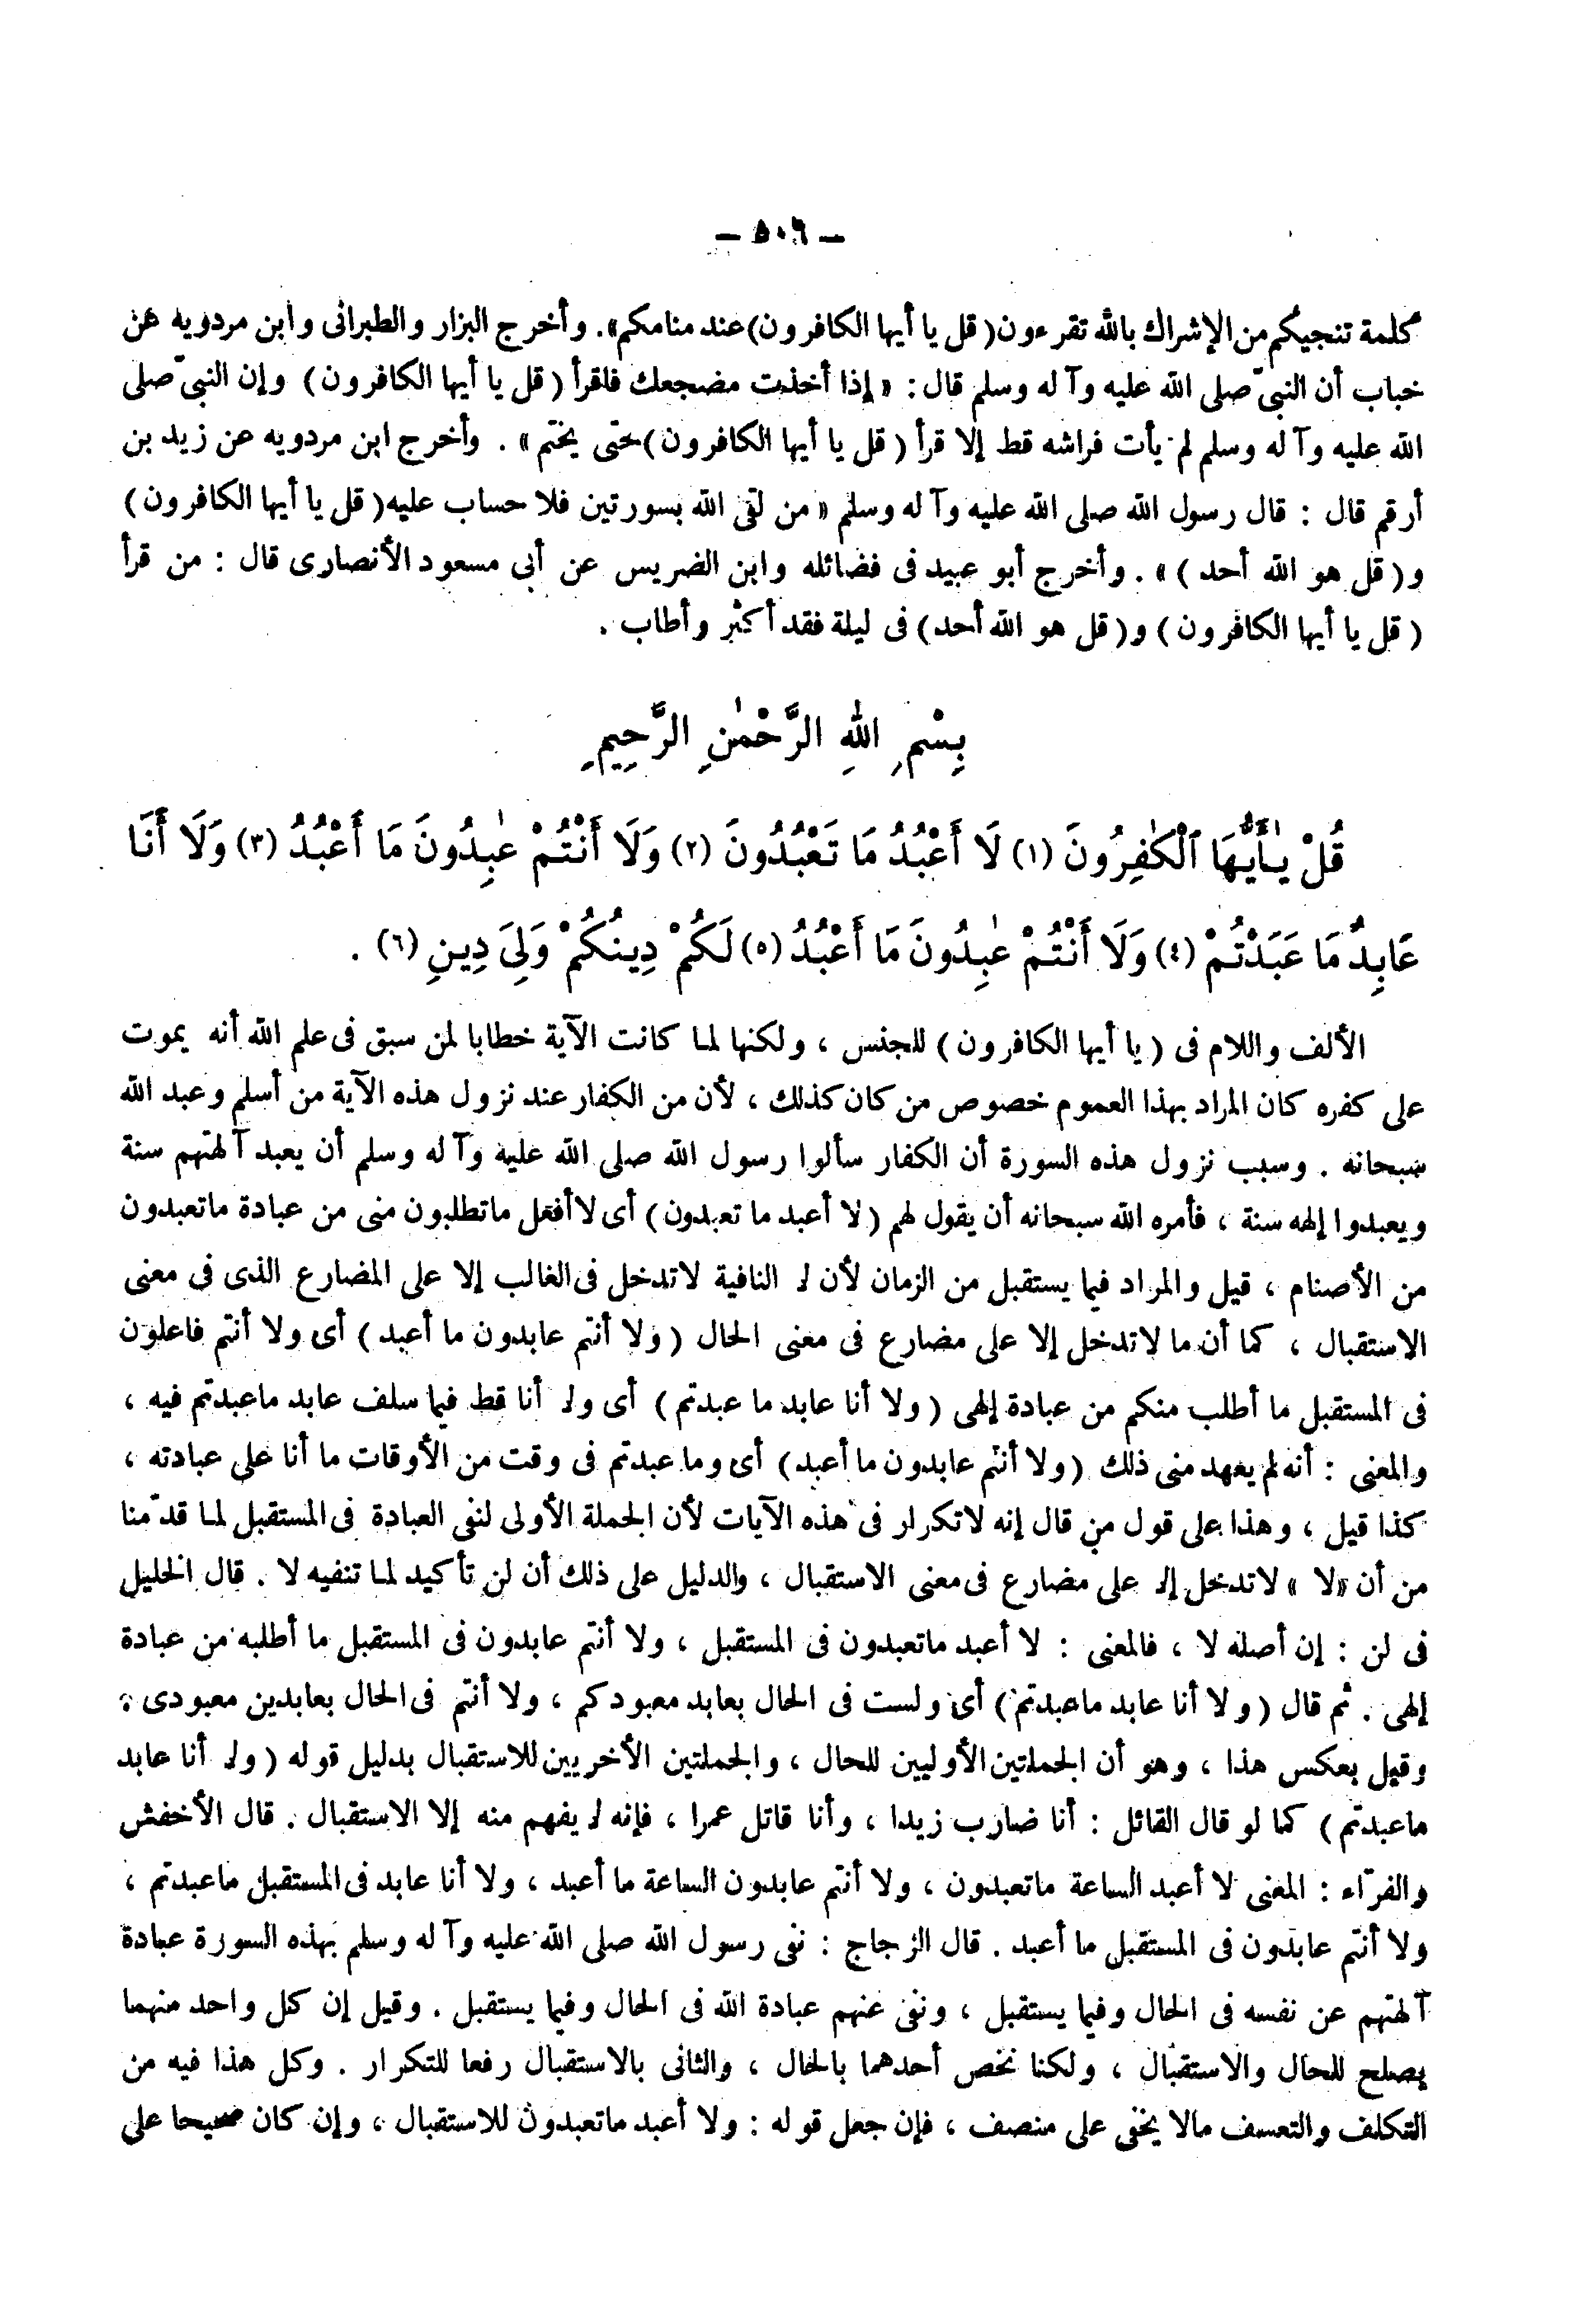 — ٥٠٦ —
كلمة تنجيكم من الإشراك بالله تقرءون (قل يا أيها الكافرون) عند منامكم». وأخرج البزار والطبرانى وابن مردويه عن
خباب أن النبىّ صلى الله عليه وآله وسلم قال: «إذا أخذت مضجعك فاقرأ (قل يا أيها الكافرون) وإن النبىّ صلى
الله عليه وآله وسلم لم يأت فراشه قط إلا قرأ (قل يا أيها الكافرون) حتى يختم». وأخرج ابن مردويه عن زيد بن
أرقم قال : قال رسول الله صلى الله عليه وآله وسلم «من لقى الله بسورتين فلا حساب عليه (قل يا أيها الكافرون)
و(قل هو الله أحد)». وأخرج أبو عبيد فى فضائله وابن الضريس عن أبى مسعود الأنصارى قال : من قرأ
(قل يا أيها الكافرون) و(قل هو الله أحد) فى ليلة فقد أكثر وأطاب .
بِسْمِ اللهِ الرَّحْمٰنِ الرَّحِيمِ
قُلْ يٰأَيُّهَا ٱلْكٰفِرُونَ (١) لَا أَعْبُدُ مَا تَعْبُدُونَ (٢) وَلَا أَنْتُمْ عٰبِدُونَ مَا أَعْبُدُ (٣) وَلَا أَنَا
عَابِدٌ مَا عَبَدْتُمْ (٤) وَلَا أَنْتُمْ عٰبِدُونَ مَا أَعْبُدُ (٥) لَكُمْ دِينُكُمْ وَلِىَ دِينِ (٦) .
الألف واللام فى (يا أيها الكافرون) للجنس ، ولكنها لما كانت الآية خطابا لمن سبق فى علم الله أنه يموت
على كفره كان المراد بهذا العموم خصوص من كان كذلك ، لأن من الكفار عند نزول هذه الآية من أسلم وعبد الله
سبحانه . وسبب نزول هذه السورة أن الكفار سألوا رسول الله صلى الله عليه وآله وسلم أن يعبد آلهتهم سنة
ويعبدوا إلهه سنة ، فأمره الله سبحانه أن يقول لهم (لا أعبد ما تعبدون) أى لا أفعل ما تطلبون منى من عبادة ما تعبدون
من الأصنام ، قيل والمراد فيما يستقبل من الزمان لأن لا النافية لا تدخل فى الغالب إلا على المضارع الذى فى معنى
الاستقبال ، كما أن ما لا تدخل إلا على مضارع فى معنى الحال (ولا أنتم عابدون ما أعبد) أى ولا أنتم فاعلون
فى المستقبل ما أطلب منكم من عبادة إلهى (ولا أنا عابد ما عبدتم) أى ولا أنا قط فيما سلف عابد ما عبدتم فيه ،
والمعنى : أنه لم يعهد منى ذلك (ولا أنتم عابدون ما أعبد) أى وما عبدتم فى وقت من الأوقات ما أنا على عبادته ،
كذا قيل ، وهذا على قول من قال إنه لا تكرار فى هذه الآيات لأن الجملة الأولى لنفى العبادة فى المستقبل لما قدّمنا
من أن «لا» لا تدخل إلا على مضارع فى معنى الاستقبال ، والدليل على ذلك أن لن تأكيد لما تنفيه لا . قال الخليل
فى لن : إن أصله لا ، فالمعنى : لا أعبد ما تعبدون فى المستقبل ، ولا أنتم عابدون فى المستقبل ما أطلبه من عبادة
إلهى . ثم قال (ولا أنا عابد ما عبدتم) أى ولست فى الحال بعابد معبودكم ، ولا أنتم فى الحال بعابدين معبودى .
وقيل بعكس هذا ، وهو أن الجملتين الأوليين للحال ، والجملتين الأخريين للاستقبال بدليل قوله (ولا أنا عابد
ما عبدتم) كما لو قال القائل : أنا ضارب زيدا ، وأنا قاتل عمرا ، فإنه لا يفهم منه إلا الاستقبال . قال الأخفش
والفرّاء : المعنى لا أعبد الساعة ما تعبدون ، ولا أنتم عابدون الساعة ما أعبد ، ولا أنا عابد فى المستقبل ما عبدتم ،
ولا أنتم عابدون فى المستقبل ما أعبد . قال الزجاج : نفى رسول الله صلى الله عليه وآله وسلم بهذه السورة عبادة
آلهتهم عن نفسه فى الحال وفيما يستقبل ، ونفى عنهم عبادة الله فى الحال وفيما يستقبل . وقيل إن كل واحد منهما
يصلح للحال والاستقبال ، ولكنا نخص أحدهما بالحال ، والثانى بالاستقبال رفعا للتكرار . وكل هذا فيه من
التكلف والتعسف مالا يخفى على منصف ، فإن جعل قوله : ولا أعبد ما تعبدون للاستقبال ، وإن كان صحيحا على